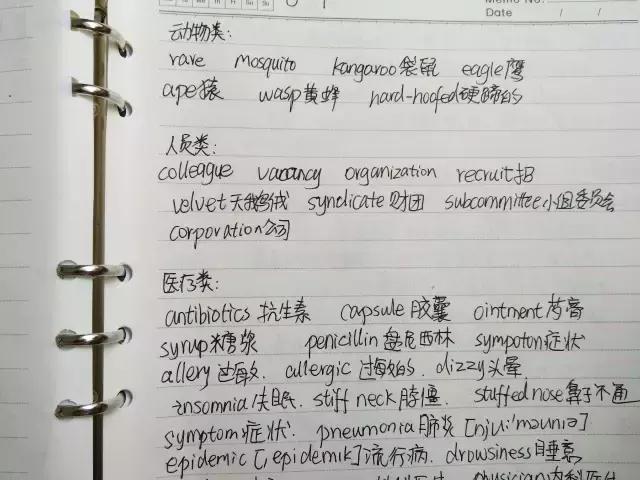 Mo Tu We Th Fr Sa Su
Memo No.
Date / /
动物类:
rare mosquito kangaroo袋鼠 eagle鹰
ape猿 wasp黄蜂 hard-hoofed硬蹄的
人员类:
colleague vacancy organization recruit招
velvet天鹅绒 syndicate财团 subcommittee小组委员会
corporation公司
医疗类:
antibiotics抗生素 capsule胶囊 ointment药膏
syrup糖浆 penicillin盘尼西林 sympoton症状
allery过敏. allergic过敏的. dizzy头晕
insomnia失眠. stiff neck脖僵 stuffed nose鼻子不通
symptom症状. pneumonia肺炎[njuː'məunia]
epidemic[,epidemik]流行病. drowsiness睡意
physician内科医生